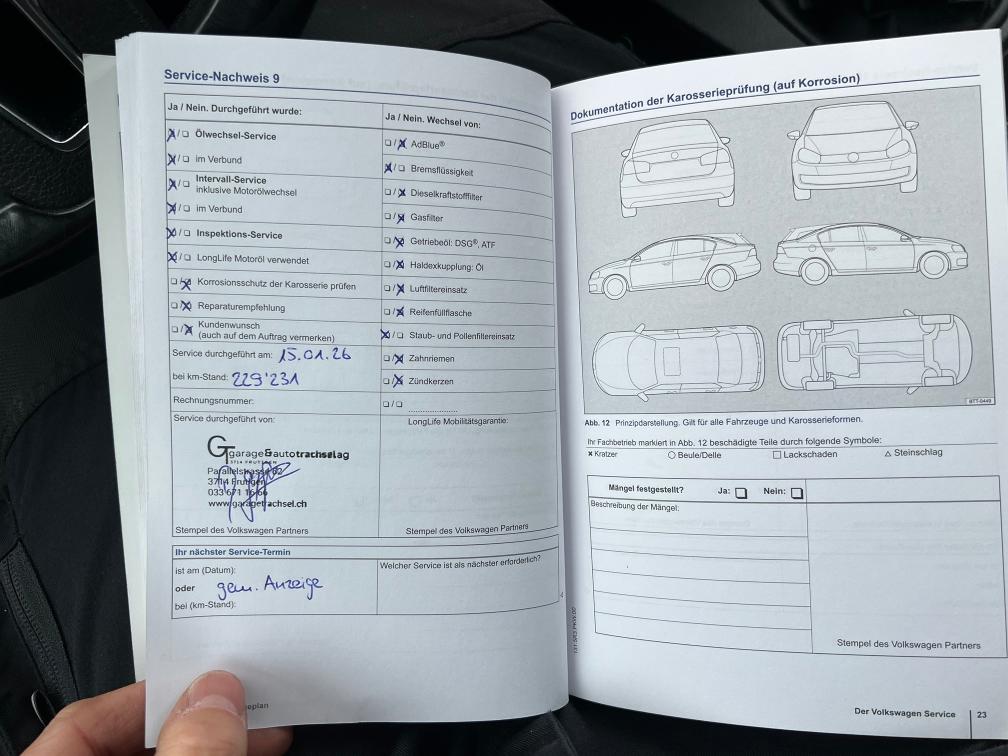 Service-Nachweis 9
Ja / Nein. Durchgeführt wurde:
X/❑ Ölwechsel-Service
X/❑ im Verbund
X/❑ Intervall-Service
inklusive Motorölwechsel
X/❑ im Verbund
X/❑ Inspektions-Service
X/❑ LongLife Motoröl verwendet
❑/X Korrosionsschutz der Karosserie prüfen
❑/X Reparaturempfehlung
❑/X Kundenwunsch
(auch auf dem Auftrag vermerken)
Service durchgeführt am: 15.01.26
bei km-Stand: 229'231
Rechnungsnummer:
Service durchgeführt von:
GT garage&autotrachselag
3714 FRUTIGEN
Parallelstrasse 62
3714 Frutigen
033 671 16 66
www.garagetrachsel.ch
Stempel des Volkswagen Partners
Ja / Nein. Wechsel von:
❑/X AdBlue®
X/❑ Bremsflüssigkeit
❑/X Dieselkraftstofffilter
❑/X Gasfilter
❑/X Getriebeöl: DSG®, ATF
❑/X Haldexkupplung: Öl
❑/X Luftfiltereinsatz
❑/X Reifenfüllflasche
X/❑ Staub- und Pollenfiltereinsatz
❑/X Zahnriemen
❑/X Zündkerzen
❑/❑ ....................
LongLife Mobilitätsgarantie:
Stempel des Volkswagen Partners
Ihr nächster Service-Termin
ist am (Datum):
oder gem. Anzeige
bei (km-Stand):
Welcher Service ist als nächster erforderlich?
eplan
Dokumentation der Karosserieprüfung (auf Korrosion)
BTT-0449
Abb. 12 Prinzipdarstellung. Gilt für alle Fahrzeuge und Karosserieformen.
Ihr Fachbetrieb markiert in Abb. 12 beschädigte Teile durch folgende Symbole:
× Kratzer ○ Beule/Delle □ Lackschaden △ Steinschlag
Mängel festgestellt? Ja: ❑ Nein: ❑
Beschreibung der Mängel:
Stempel des Volkswagen Partners
Der Volkswagen Service 23